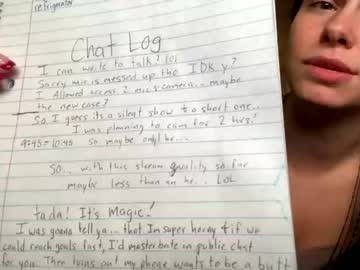 refrigerator
Chat Log
I can write to talk? lol
Sorry mic is messed up the IDK y?
I Allowed access 2 mic & camera... maybe
the new case?
So, I guess its a silent show to a short one..
I was planning to cam for 2 hrs!
9:45 = 10:45 So, maybe only 1 hr...
So.. with this stream quality so far
maybe less than an hr... LOL
tada! It's Magic!
I was gonna tell ya... that Im super horny & if we
could reach goals fast, I'd masterbate in public chat
for you. Then turns out my phone wants to be a butt